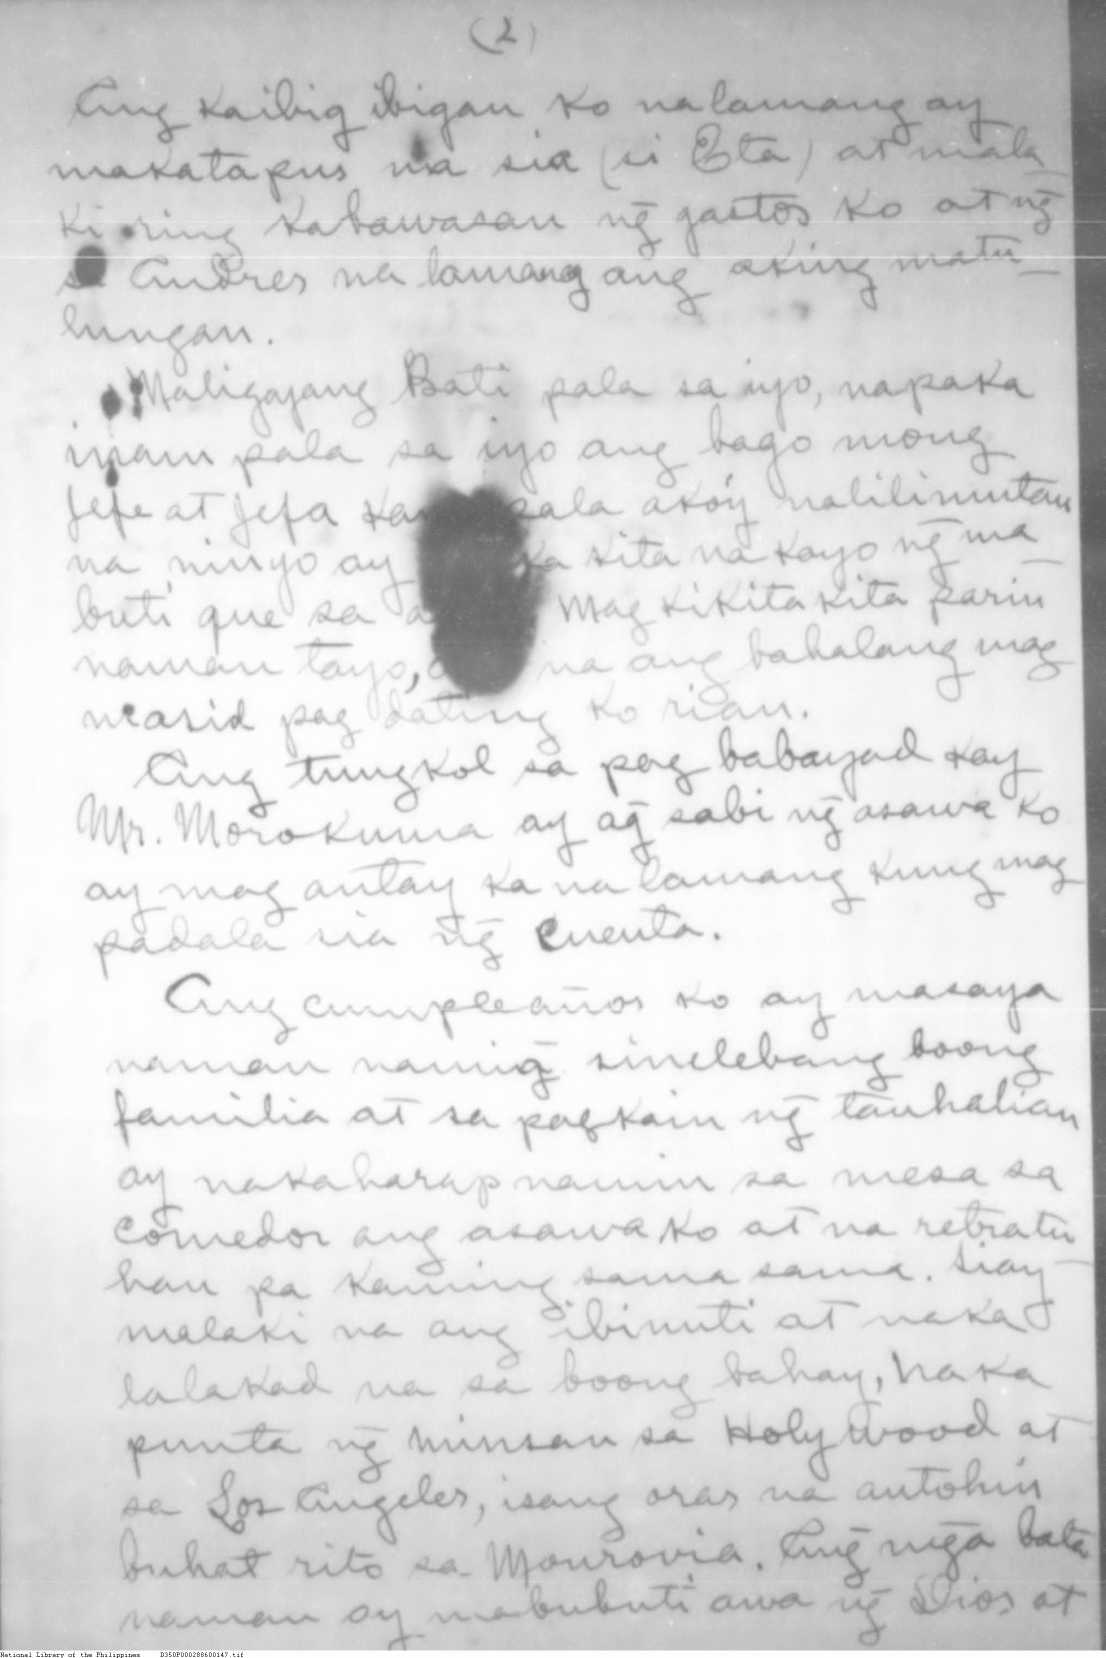 (2)
Ang kaibig ibigan ko na lamang ay
makatapus na sia (si Eta) at mala
ki ring kabawasan ng̃ gastos ko at ng̃
si Andres na lamang ang aking matu
lungan.
Maligayang Bati pala sa iyo, napaka
inam pala sa iyo ang bago mong
Jefe at Jefa pala ako'y nalilimutan
na ninyo ay kita na kayo ng̃ ma
buti que sa Mag kikita kita parin
naman tayo, na ang bahalang mag
masid pag dating ko rian.
Ang tungkol sa pag babayad kay
Mr. Morokuma ay ag̃ sabi ng̃ asawa ko
ay mag antay ka na lamang kung mag
padala sia ng̃ cuenta.
Ang cumpleaños ko ay masaya
naman namig̃ sinelebang boong
familia at sa pagkain ng̃ tanhalian
ay nakaharap namin sa mesa sa
comedor ang asawa ko at na retratu
han pa kaming sama sama. Siay
malaki na ang ibinuti at naka
lalakad na sa boong bahay, naka
punta ng̃ minsan sa Holy Wood at
sa Los Angeles, isang oras na autohin
buhat rito sa Monrovia. Ang̃ mg̃a bata
naman ay mabubuti awa ng̃ Dios at
National Library of the Philippines D350P000288600147.tif